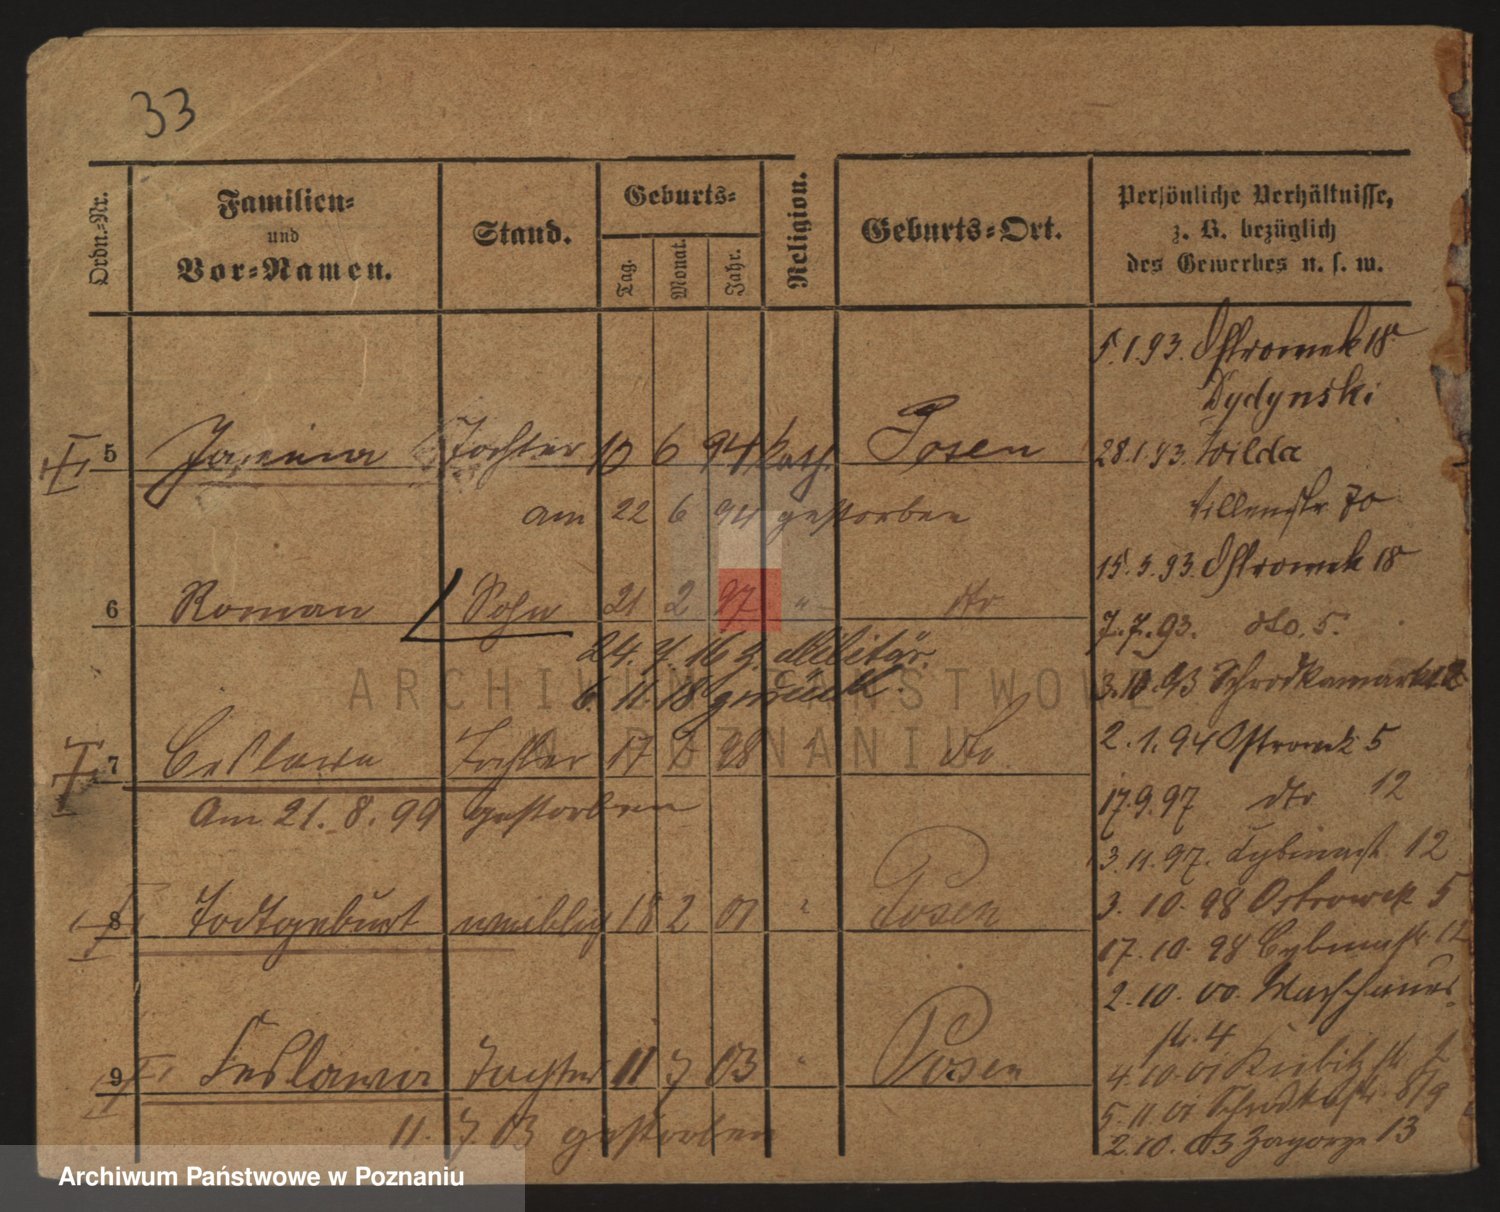 33
Ordn.-Nr.
Familien-
und
Vor-Namen.
Stand.
Geburts-
Tag.
Monat.
Jahr.
Religion.
Geburts-Ort.
Persönliche Verhältnisse,
z. B. bezüglich
des Gewerbes u. s. w.
5 Janina Tochter 10 6 94 kath. Posen
am 22 6 94 gestorben
6 Roman Sohn 21 2 97 " dto
24. 7. 16 z. Militär.
6. 11. 18 zurück.
7 Ceslawa Tochter 17 98 dto.
Am 21. 8. 99 gestorben
8 Todtgeburt weiblig 18 2 01 " Posen
9 Ceslawa Tochter 11 7 03 " Posen
11. 7 03 gestorben
5.1.93. Ostrowek 18
Dydynski
28.1.93. Wilda
70
15.5.93. Ostrowek 18
7.7.93. dto. 5.
3.10.93 Schrodkamarkt 12
2.1.94 Ostrowek 5
17.9.97 dto 12
3.11.97. Cybinastr. 12
3.10.98 Ostrowek 5
17.10.98 Cybinastr. 12
2.10.00. Warschauer-
str. 4
4.10.01
5.11.01 8/9
2.10.03 Zagorze 13
ARCHIWUM PAŃSTWOWE
W POZNANIU
Archiwum Państwowe w Poznaniu